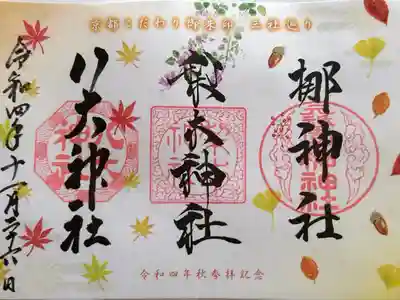 京都こだわり御朱印 三社巡り
梛神社
梨木神社
八大神社
令和四年十一月二十六日
令和四年秋参拝記念